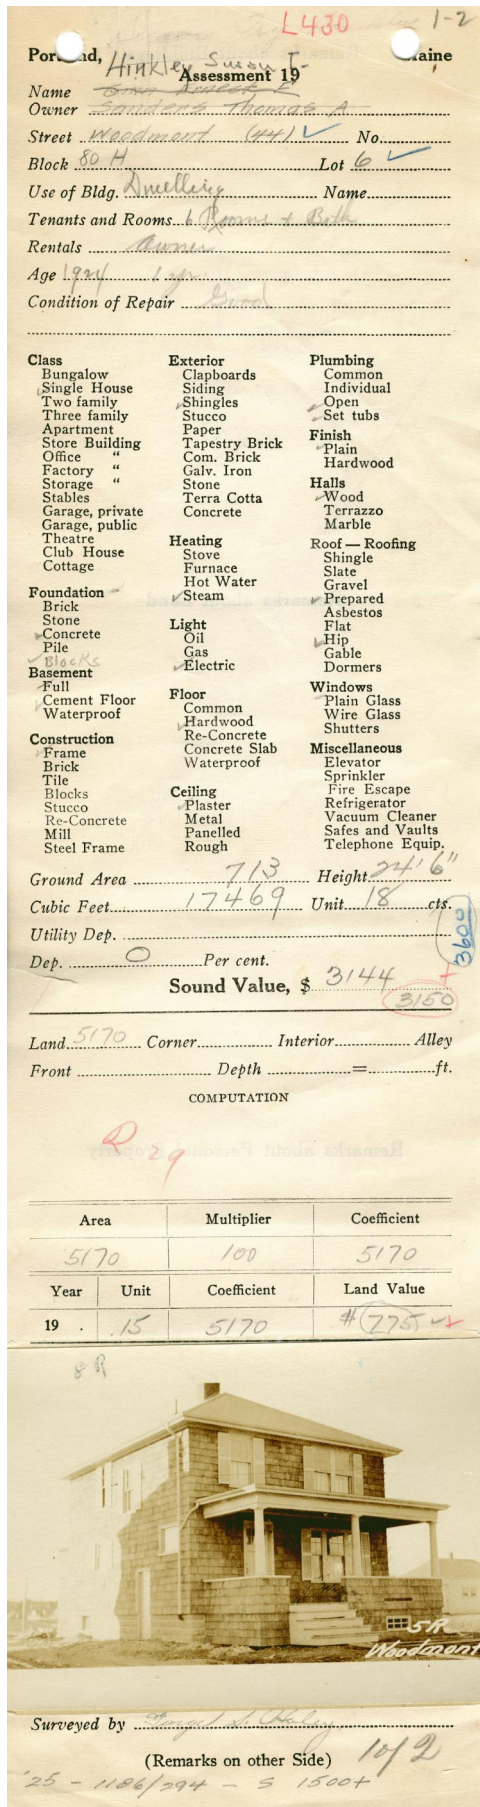 L430 1-2
Portland, Maine
Hinkley Susan I.
Assessment 19
Name
Owner Sanders Thomas A
Street Woodmont (44) ✓ No.
Block 80 H Lot 6 ✓
Use of Bldg. Dwelling Name
Tenants and Rooms 6 Rooms + Bath
Rentals Owner
Age 1924 1 yr.
Condition of Repair Good
Class
Bungalow
✓ Single House
Two family
Three family
Apartment
Store Building
Office "
Factory "
Storage "
Stables
Garage, private
Garage, public
Theatre
Club House
Cottage
Foundation
Brick
Stone
✓ Concrete
Pile
✓ Blocks
Basement
✓ Full
✓ Cement Floor
Waterproof
Construction
✓ Frame
Brick
Tile
Blocks
Stucco
Re-Concrete
Mill
Steel Frame
Exterior
Clapboards
Siding
✓ Shingles
Stucco
Paper
Tapestry Brick
Com. Brick
Galv. Iron
Stone
Terra Cotta
Concrete
Heating
Stove
Furnace
Hot Water
✓ Steam
Light
Oil
Gas
✓ Electric
Floor
Common
✓ Hardwood
Re-Concrete
Concrete Slab
Waterproof
Ceiling
✓ Plaster
Metal
Panelled
Rough
Plumbing
Common
Individual
✓ Open
✓ Set tubs
Finish
✓ Plain
Hardwood
Halls
✓ Wood
Terrazzo
Marble
Roof — Roofing
Shingle
Slate
Gravel
✓ Prepared
Asbestos
Flat
✓ Hip
Gable
Dormers
Windows
Plain Glass
Wire Glass
Shutters
Miscellaneous
Elevator
Sprinkler
Fire Escape
Refrigerator
Vacuum Cleaner
Safes and Vaults
Telephone Equip.
Ground Area 713 Height 24'6"
Cubic Feet 17469 Unit 18 cts.
Utility Dep.
Dep. 0 Per cent.
3600 +
Sound Value, $ 3144
3150
Land 5170 Corner Interior Alley
Front Depth = ft.
COMPUTATION
D 29
Area Multiplier Coefficient
5170 100 5170
Year Unit Coefficient Land Value
19 . .15 5170 # 775 ✓
8 R
5R
Woodmont
Surveyed by
(Remarks on other Side) 1 of 2
'25 - 1186/294 - S 1500+